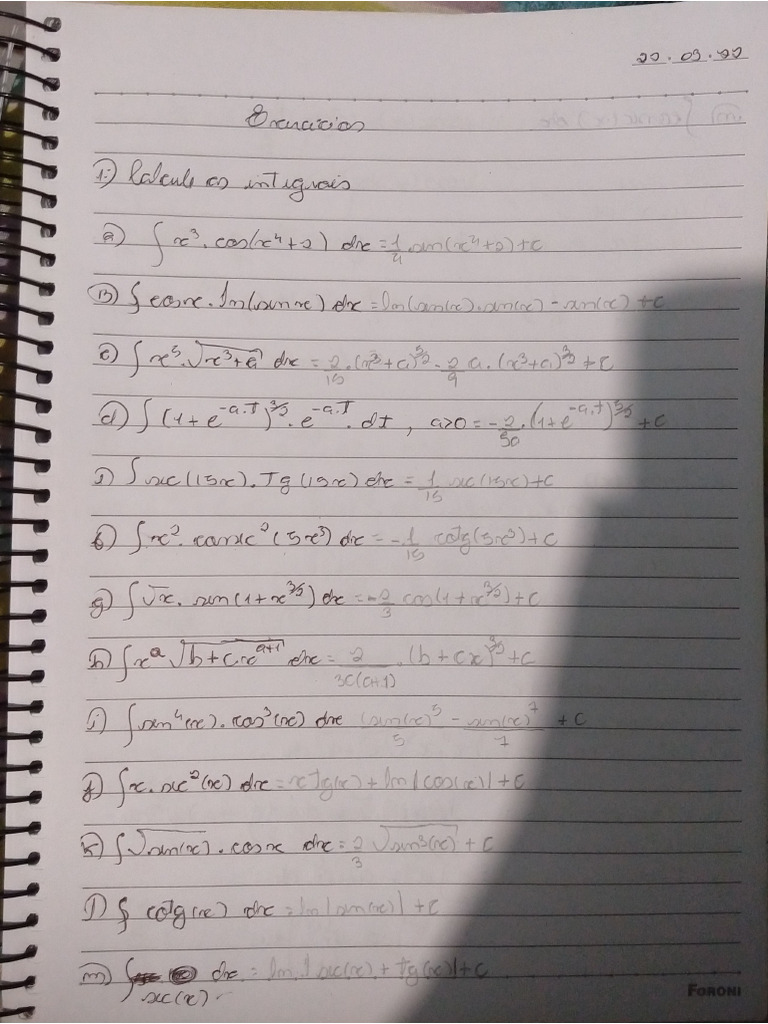 22.03.22
Exercícios
1:) Calcule as integrais
a) ∫ x³. cos(x⁴+2) dx = 1/4 . sen(x⁴+2) + C
B) ∫ cosx. ln(senx) dx = ln(sen(x)).sen(x) - sen(x) + C
c) ∫ x⁵. √(x³+a) dx = 2/15 . (x³+a)^(5/2) - 2/9 a. (x³+a)^(3/2) + C
d) ∫ (1+e^(-a.T))^(3/2). e^(-a.T). dT, a>0 =
e) ∫ sec(15x). Tg(15x) dx = 1/15 sec(15x) + C
f) ∫ x². cossec²(5x³) dx = -1/15 cotg(5x³) + C
g) ∫ √x. sen(1+x^(3/2)) dx = -2/3 cos(1+x^(3/2)) + C
h) ∫ x^a √(b+c.x^(a+1)) dx = 2/3c(a+1) . (b+cx)^(3/2) + C
i) ∫ sen⁴(x). cos³(x) dx (sen(x)⁵/5 - sen(x)⁷/7 + C
j) ∫ x. sec²(x) dx = x Tg(x) + ln|cos(x)| + C
k) ∫ √sen(x). cosx dx = 2/3 √sen³(x) + C
l) ∫ cotg(x) dx = ln|sen(x)| + C
m) ∫ dx = ln|sec(x) + Tg(x)| + C
sec(x)
FORONI